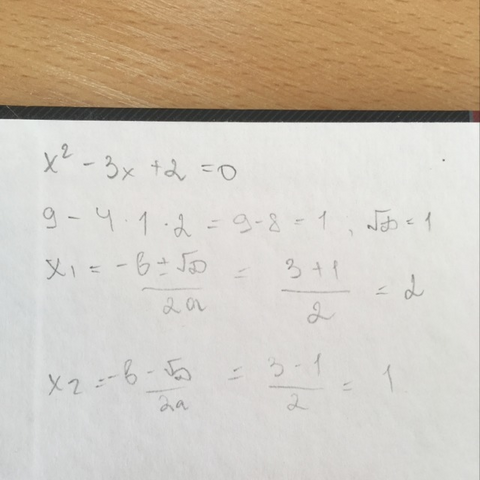 x² - 3x + 2 = 0
9 - 4 · 1 · 2 = 9 - 8 = 1, √D = 1
x₁ = (-b ± √D)/(2a) = (3 + 1)/2 = 2
x₂ = (-b - √D)/(2a) = (3 - 1)/2 = 1